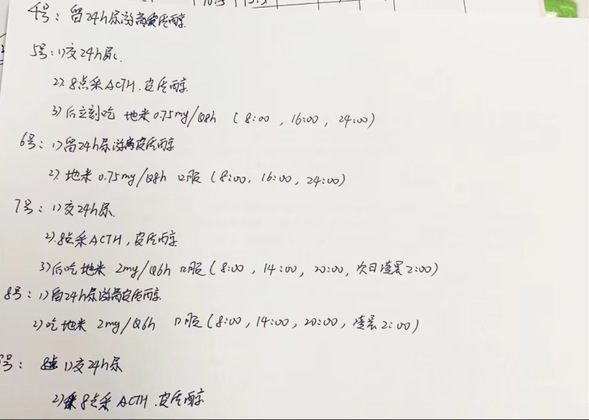 4号：留24h尿游离皮质醇
5号：1)交24h尿
2). 8点采ACTH.皮质醇
3)后立刻吃 地米0.75mg/Q8h （8:00，16:00，24:00）
6号：1)留24h尿游离皮质醇
2). 地米0.75mg/Q8h 口服（8:00，16:00，24:00）
7号：1)交24h尿
2).8点采ACTH，皮质醇
3)后吃地米 2mg/Q6h 口服（8:00，14:00，20:00，次日凌晨2:00）
8号：1)留24h尿游离皮质醇
2)吃地米 2mg/Q6h 口服（8:00，14:00，20:00，凌晨2:00）
号： 1)交24h尿
2) 8点采ACTH.皮质醇